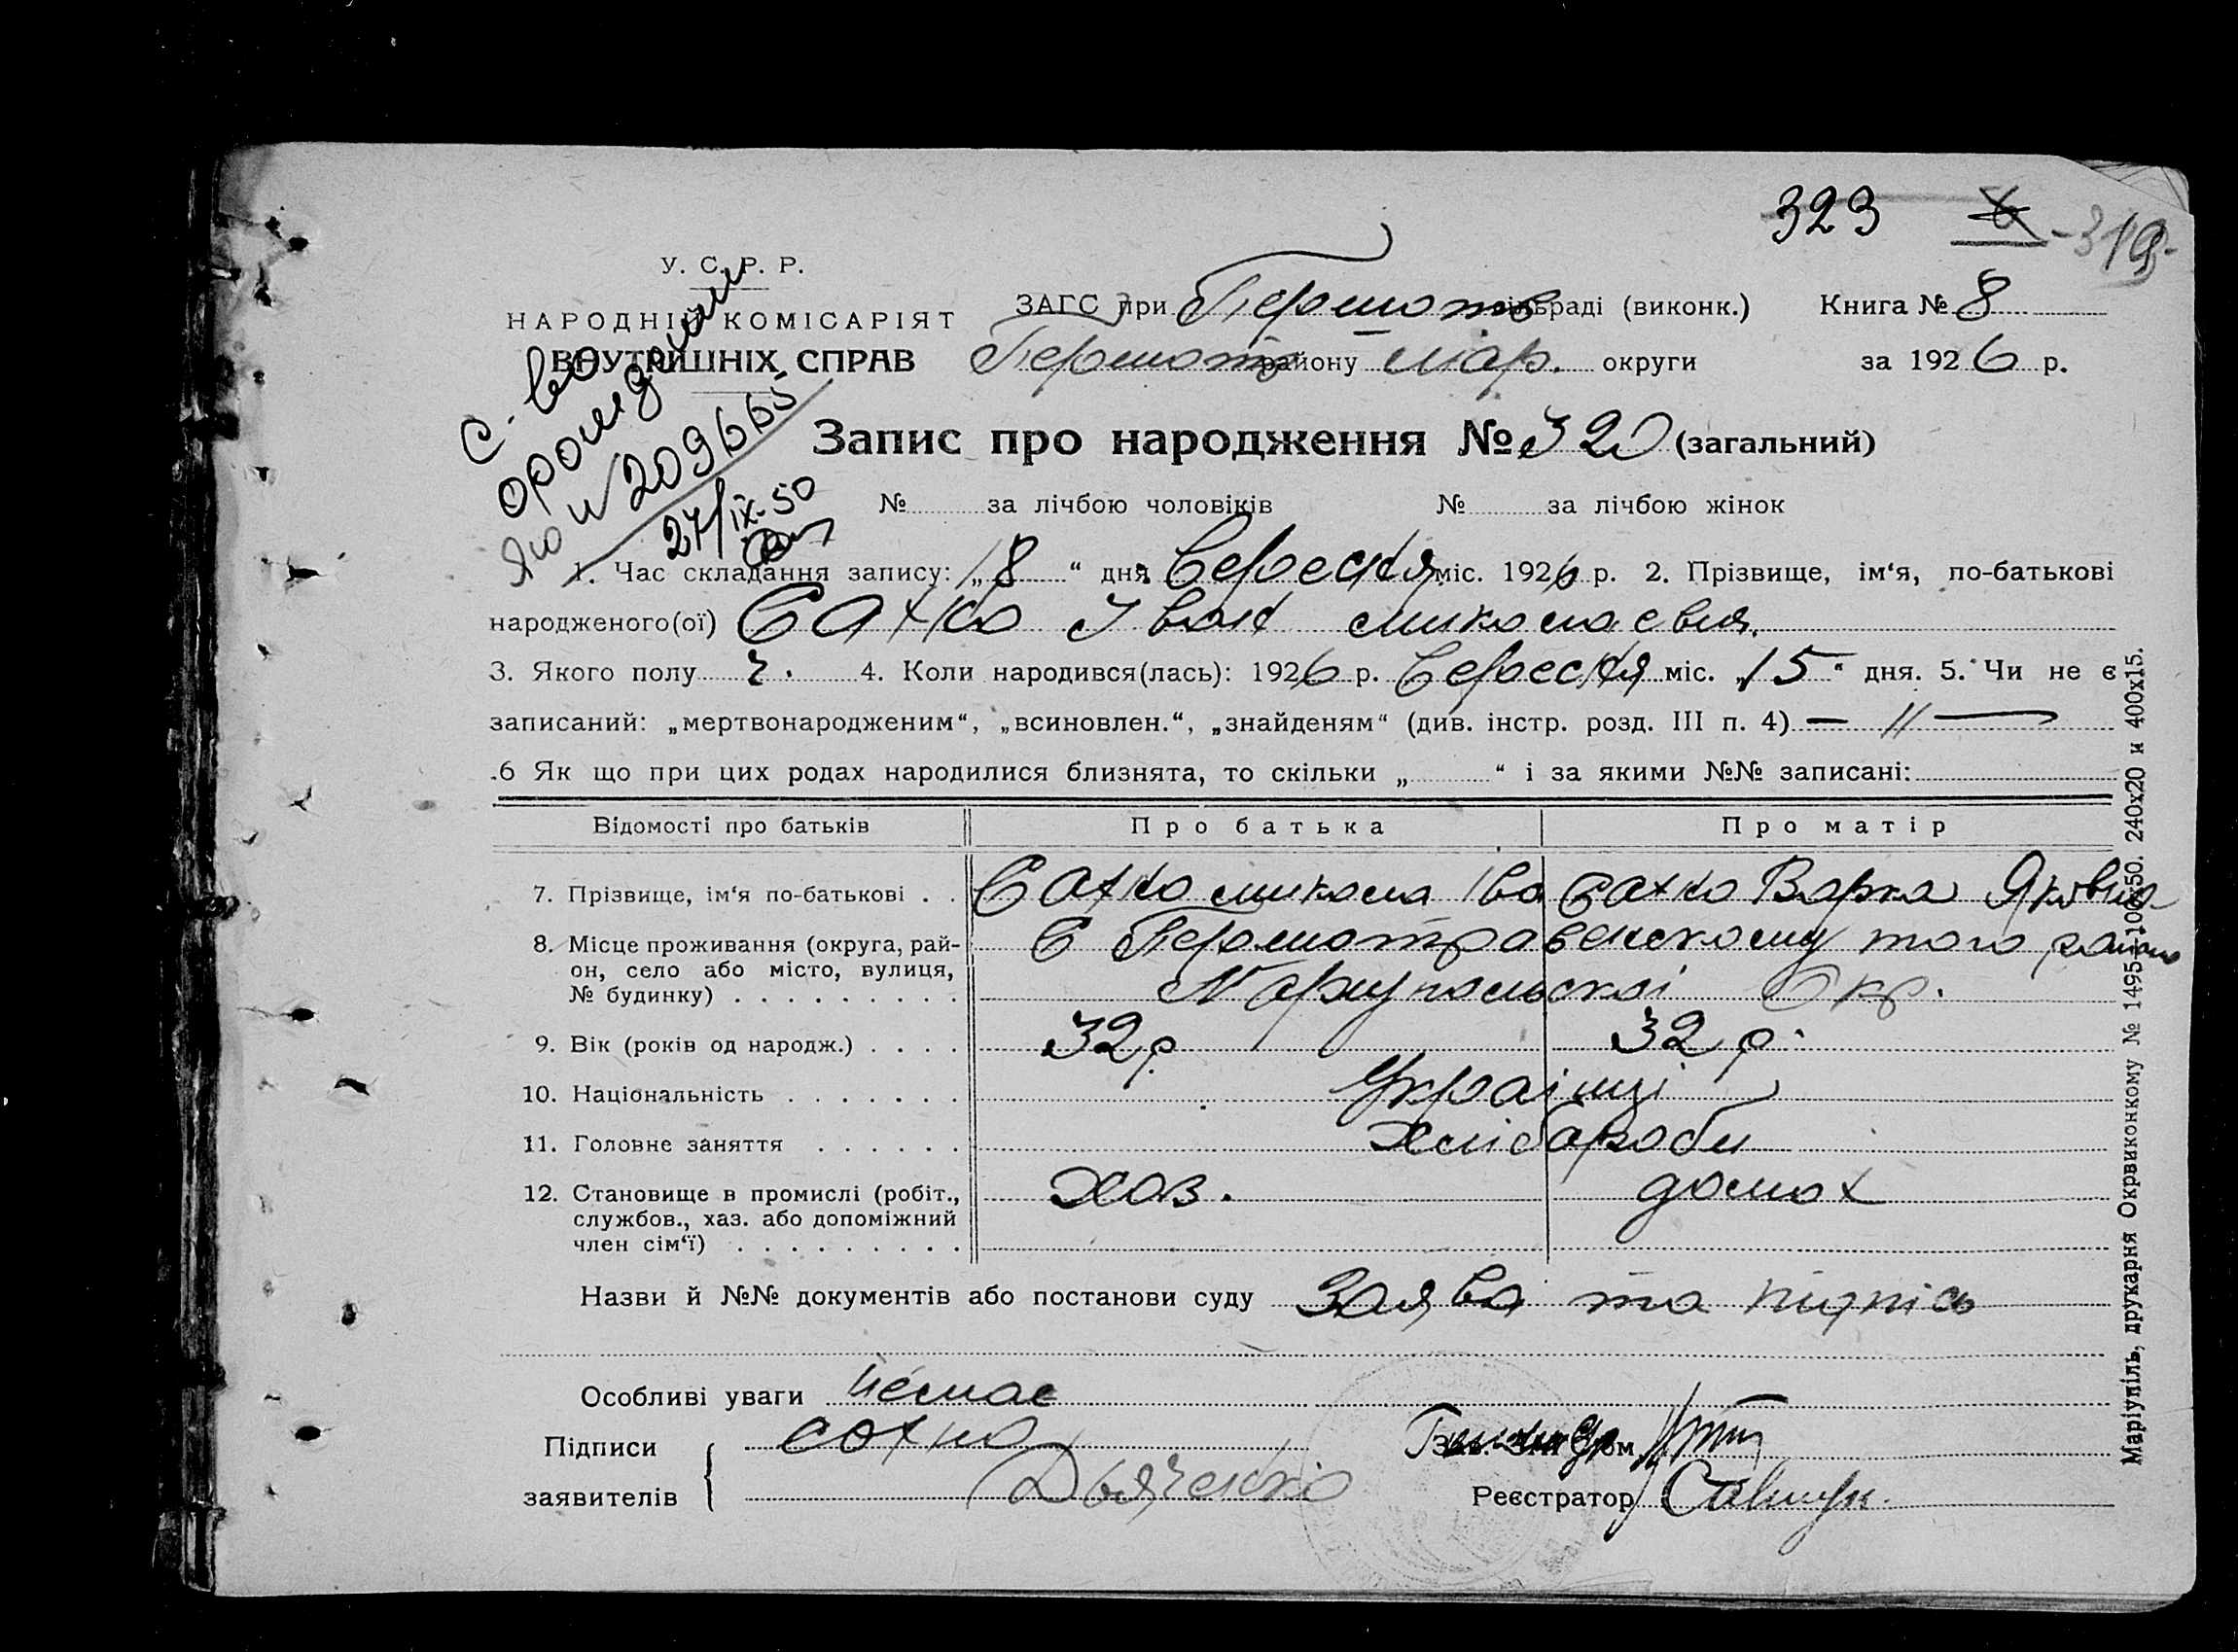 323 6 -319-
У. С. Р. Р.
НАРОДНІЙ КОМІСАРІЯТ
ВНУТРІШНІХ СПРАВ
ЗАГС при Першотр сільраді (виконк.) Книга № 8
Першотр району Мар. округи за 1926 р.
с-во
ЯЮ и 209665
27/IX-50
Запис про народження № 320 (загальний)
№ за лічбою чоловіків № за лічбою жінок
1. Час складання запису: „18“ дня Вересня міс. 1926 р. 2. Прізвище, ім‘я, по-батькові
народженого(ої) Сахно Іван Миколаєвич.
3. Якого полу ч. 4. Коли народився(лась): 1926 р. Вересня міс. „15“ дня. 5. Чи не є
записаний: „мертвонародженим“, „всиновлен.“, „знайденям“ (див. інстр. розд. III п. 4) — // —
.6 Як що при цих родах народилися близнята, то скільки „ “ і за якими №№ записані:
Відомості про батьків Про батька Про матір
7. Прізвище, ім‘я по-батькові . . Сахно Микола Іва Сахно Варка Яковна
8. Місце проживання (округа, рай- С Першотравенскому того району
он, село або місто, вулиця, Марупольскоі Окр.
№ будинку) . . . . . . . . .
9. Вік (років од народж.) . . . . 32 р 32 р.
10. Національність . . . . . . . Украінці
11. Головне заняття . . . . . . Хліборобы
12. Становище в промислі (робіт., хоз. домох
службов., хаз. або допоміжний
член сім‘ї) . . . . . . . . .
Назви й №№ документів або постанови суду Заява та підпісь
Особливі уваги немає
Підписи Сахно
заявителів Дьяченко
Реєстратор
Маріупіль, друкарня Окрвиконкому № 1495—100х50. 240х20 и 400х15.